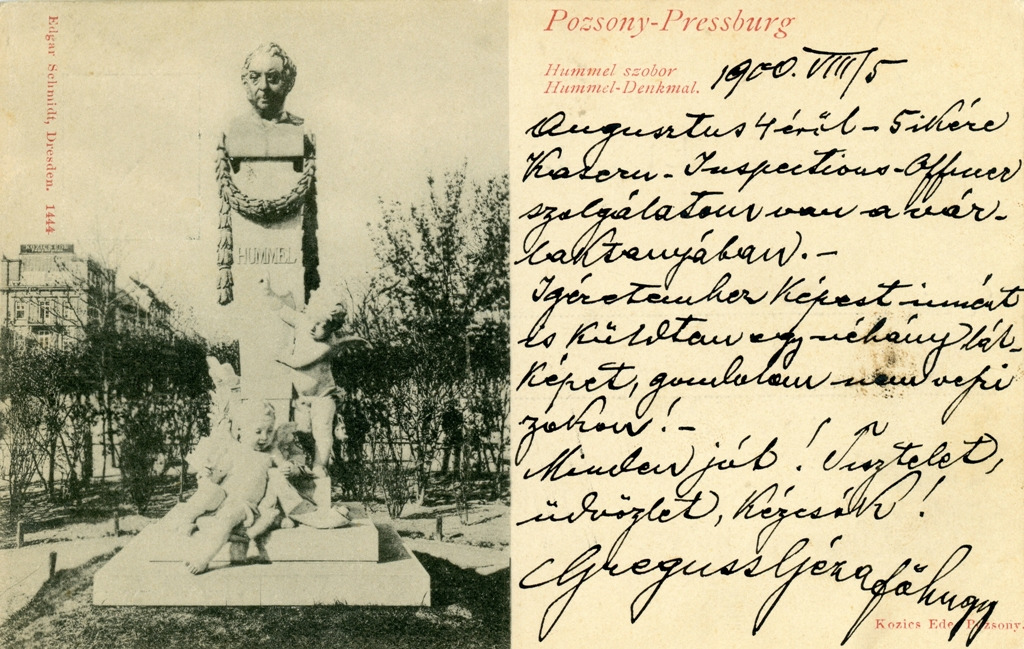 Edgar Schmidt, Dresden. 1444
HUMMEL
Pozsony-Pressburg
Hummel szobor
Hummel-Denkmal.
1900. VIII/5
Augusztus 4 éről - 5 ikére
Kasern-Inspections-Officier
szolgálatom van a vár-
laktanyában. -
Igéretemhez képest irnért
és küldtem egy néhány lát-
képet, gondolom nem veszi
zokon! -
Minden jót! Tisztelet,
üdvözlet, kézcsók!
Greguss Géza
főhngy
Kozics Ede, Pozsony.